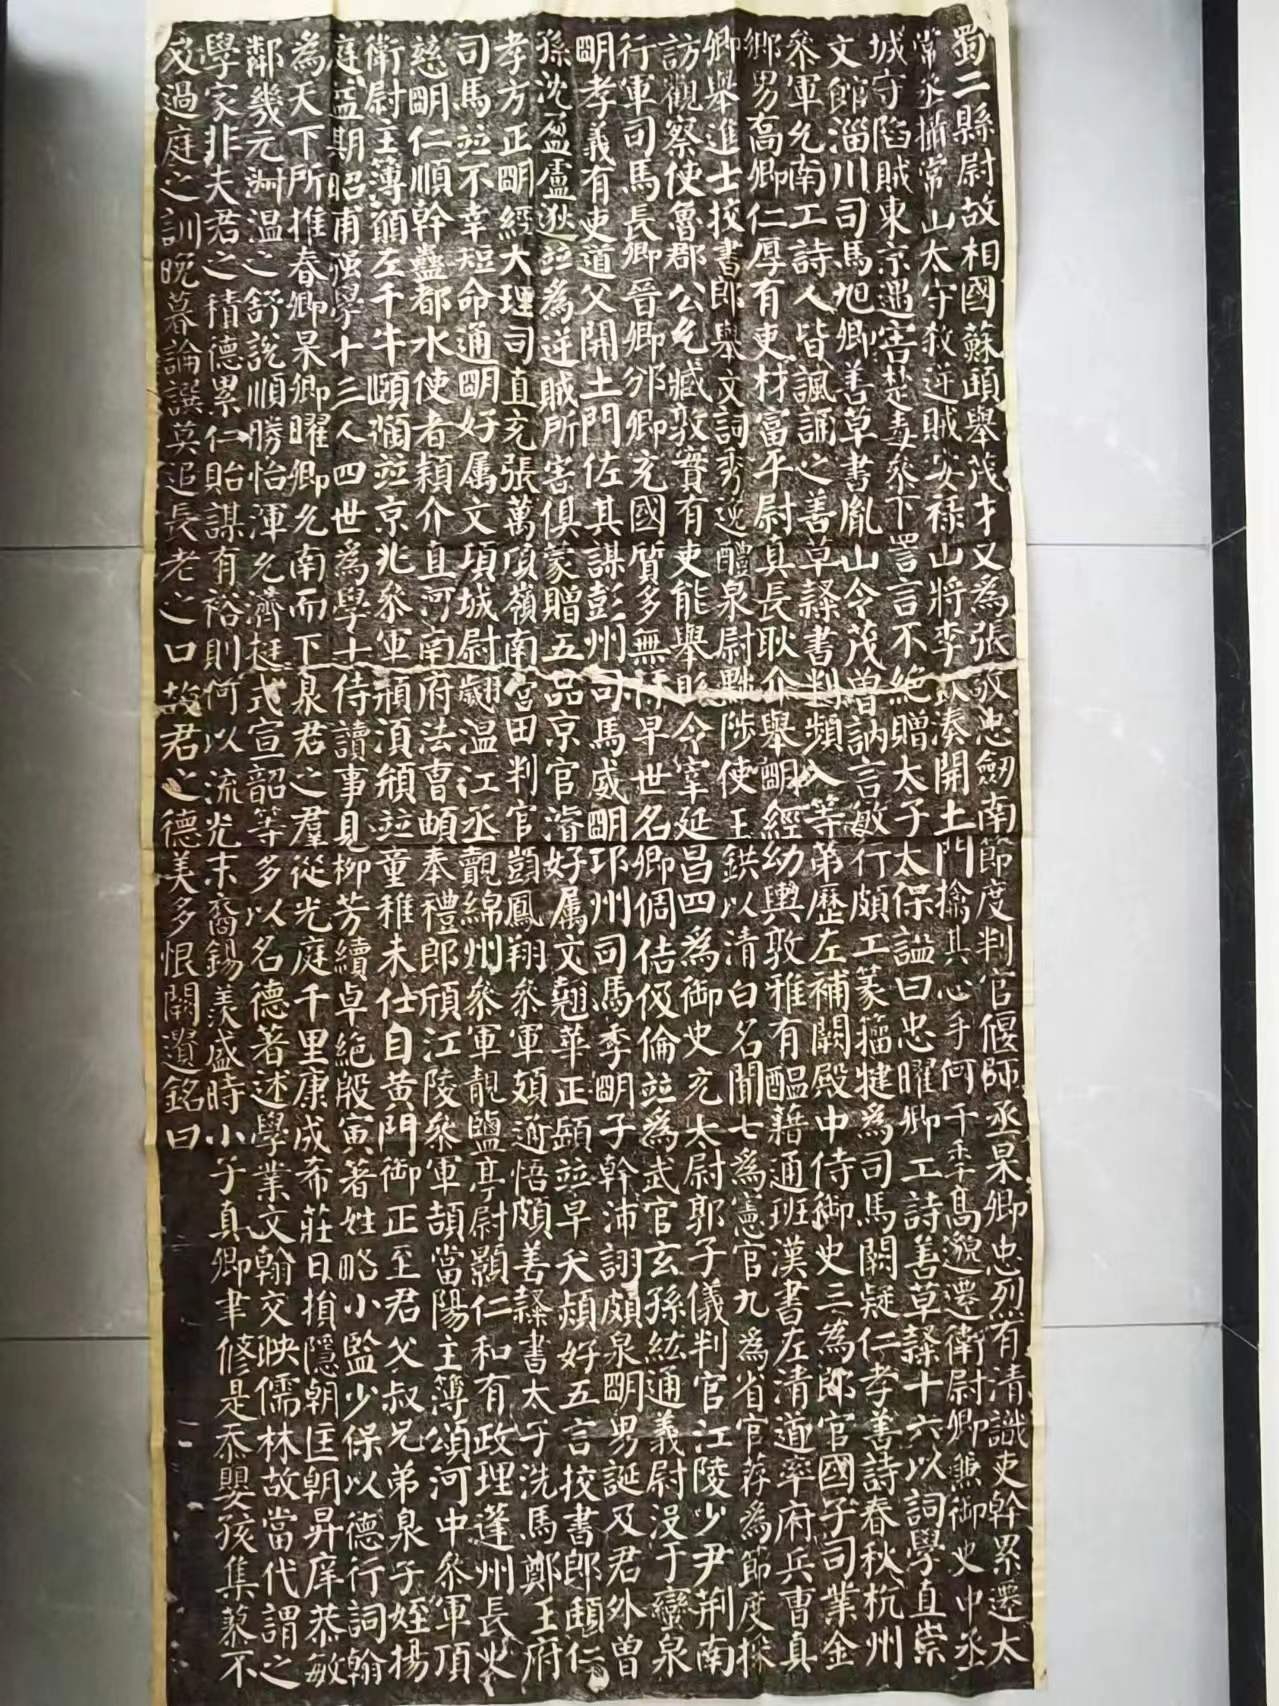 蜀二縣尉故相國蘇頲舉茂才又為張敬忠劒南節度判官偃師丞杲卿忠烈有清識吏幹累遷太
常丞攝常山太守殺逆賊安祿山將李欽湊開土門擒其心手何千年高邈遷衛尉卿兼御史中丞
城守陷賊東京遇害楚毒參下詈言不絶贈太子太保諡曰忠曜卿工詩善草隸十六以詞學直崇
文館淄川司馬旭卿善草書胤山令茂曾訥言敏行頗工篆籒犍為司馬闕疑仁孝善詩春秋杭州
參軍允南工詩人皆諷誦之善草隸書判頻入等第歷左補闕殿中侍御史三為郎官國子司業金
鄉男喬卿仁厚有吏材富平尉真長耿介舉朙經幼輿敦雅有醞藉通班漢書左清道率府兵曹真
卿舉進士挍書郎舉文詞秀逸醴泉尉黜陟使王鉷以清白名聞七為憲官九為省官荐為節度採
訪觀察使魯郡公允臧敦實有吏能舉縣令宰延昌四為御史充太尉郭子儀判官江陵少尹荊南
行軍司馬長卿晉卿邠卿充國質多無祿早世名卿倜佶伋倫並為武官玄孫紘通義尉没于蠻泉
朙孝義有吏道父開土門佐其謀彭州司馬威朙邛州司馬季朙子幹沛詡頗泉朙男誕及君外曾
孫沈盈盧逖並為逆賊所害俱蒙贈五品京官濬好属文翹華正頣並早夭頍好五言挍書郎頲仁
孝方正朙經大理司直充張萬頃嶺南營田判官顗鳳翔參軍頍通悟頗善隸書太子洗馬鄭王府
司馬並不幸短命通朙好属文項城尉翽温江丞覿綿州參軍靚鹽亭尉顥仁和有政理蓬州長史
慈朙仁順幹蠱都水使者穎介直河南府法曹頔奉禮郎頎江陵參軍頡當陽主簿頌河中參軍頂
衛尉主簿願左千牛頤頵並京兆參軍頯須頩並童稚未仕自黃門御正至君父叔兄弟泉子姪揚
庭益期昭甫強學十三人四世為學士侍讀事見柳芳續卓絶殷寅著姓略小監少保以德行詞翰
為天下所推春卿杲卿曜卿允南而下泉君之羣從光庭千里康成希莊日損隱朝匡朝昇庠恭敏
鄰幾元淵温之舒説順勝怡渾允濟挺式宣韶等多以名德著述學業文翰交映儒林故當代謂之
學家非夫君之積德累仁貽謀有裕則何以流光末裔錫羡盛時小子真卿聿脩是忝嬰孩集蓼不
及過庭之訓晚暮論譔莫追長老之口故君之德美多恨闕遺銘曰